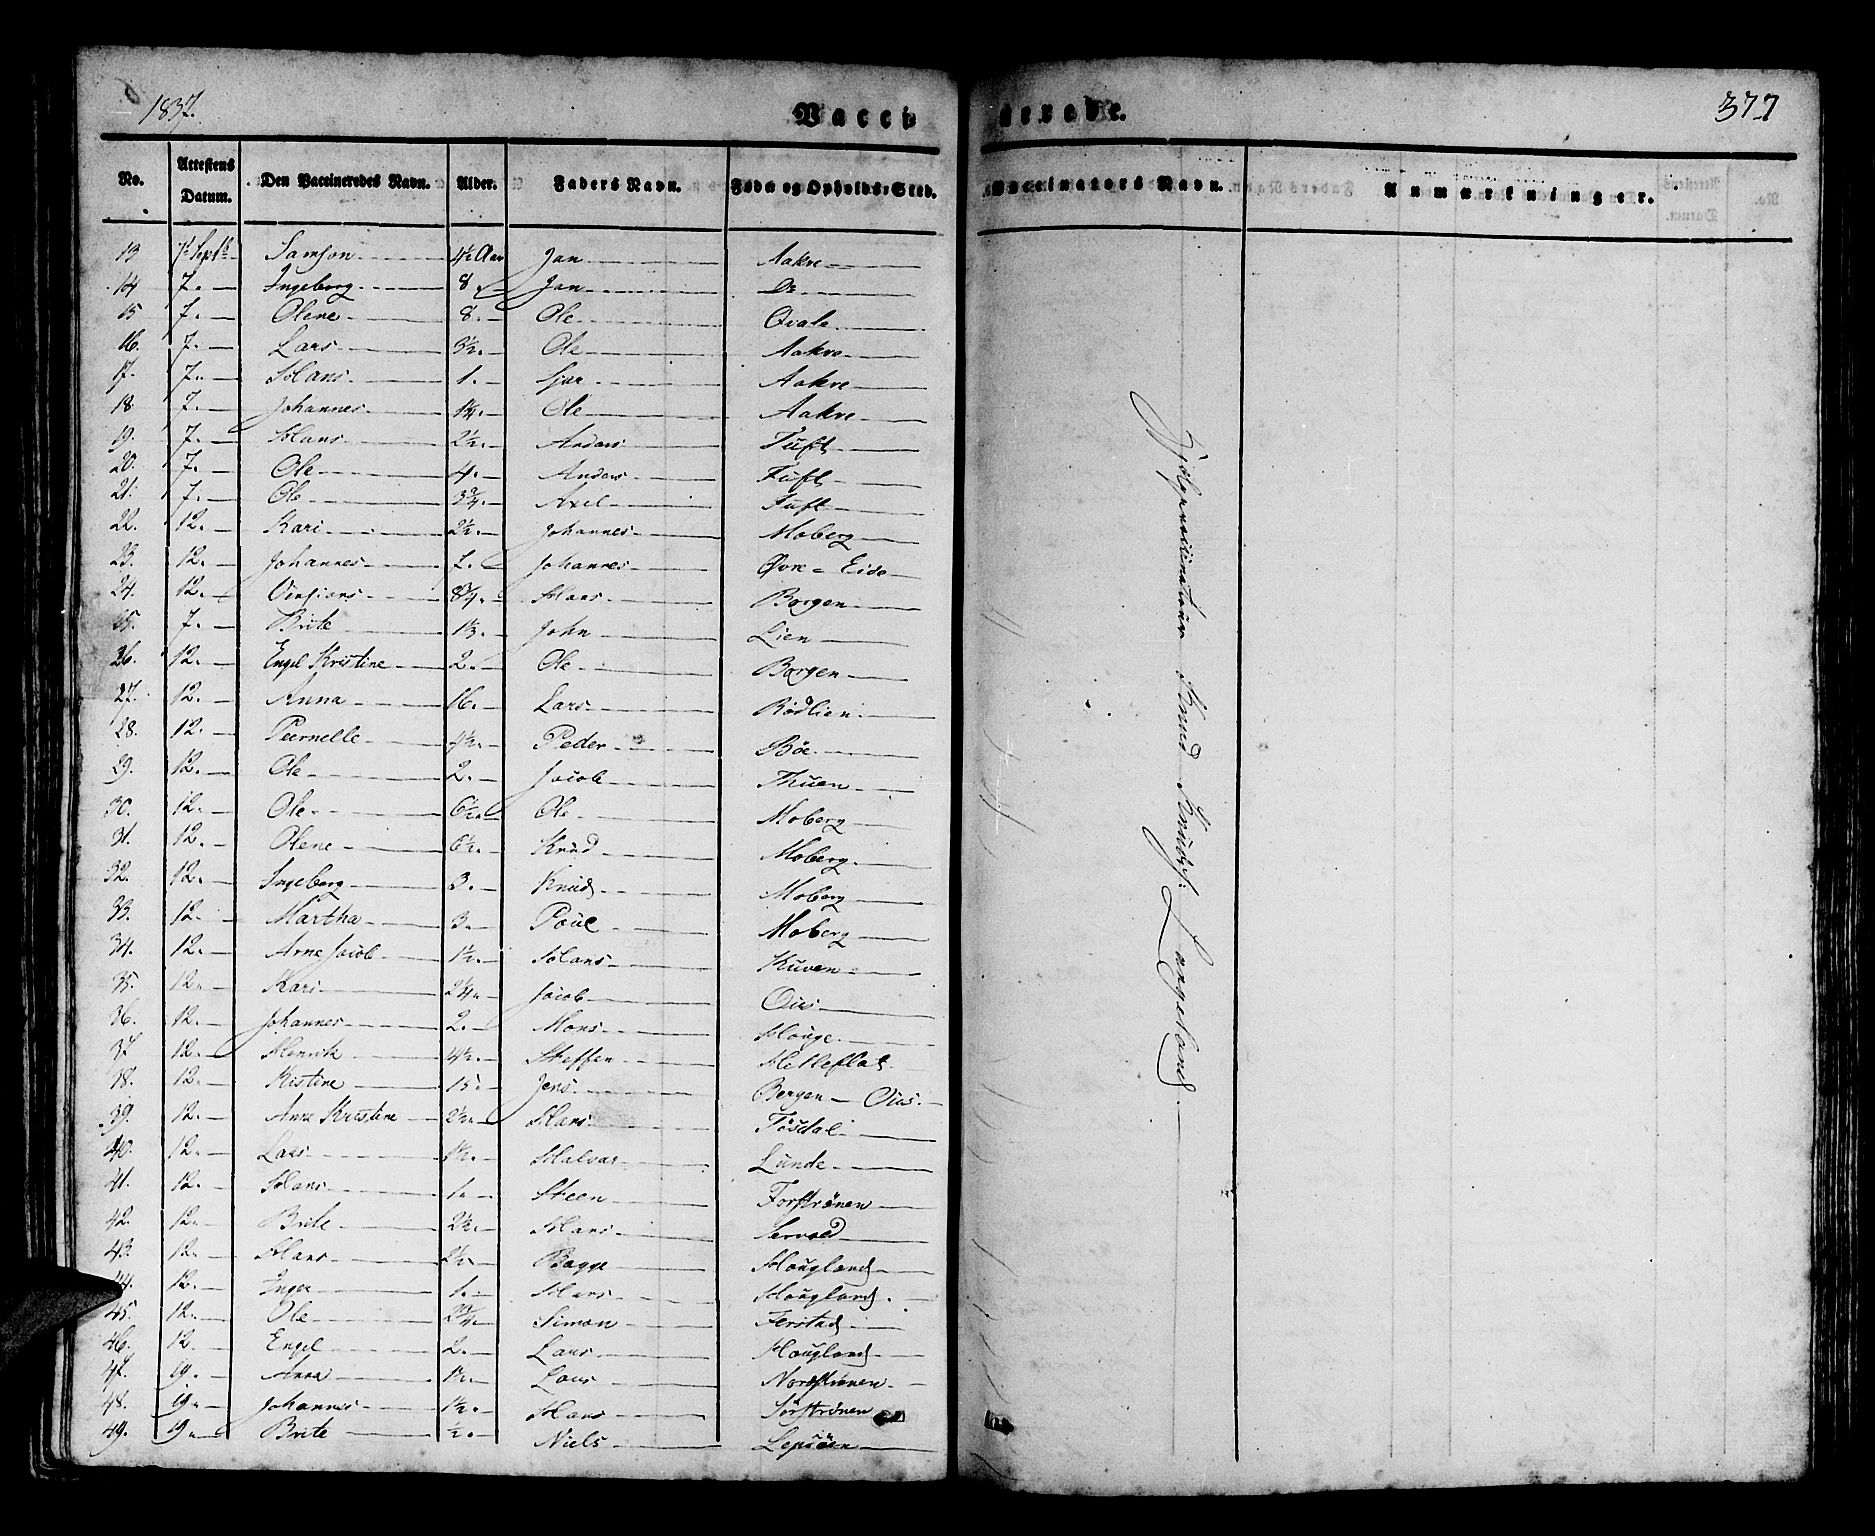 1837.
Vaccinerede.
377
No. Attestens Datum. Den Vaccineredes Navn. Alder. Faders Navn. Føde og Opholds-Sted. Vaccinateurs Navn. Anmærkninger.
13 7de Septbr Samson 4½ Aar Jan Aakre
14 7. Ingeborg 8. Jan Do
15 7. Olene 8. Ole Qvale
16. 7. Lars 3½. Ole Aakre
17. 7. Hans 1. Aakre
18 7. Johannes 1¼. Ole Aakre
19. 7. Hans 2½. Anders Tuft
20. 7. Ole 4. Anders Tuft
21. 7. Ole 3¾. Axel Tuft
22. 12. Kari 2½. Johannes Moberg
23. 12. Johannes 7. Johannes Øvre-Eide
24. 12. 8¾. Hans Borgen
25. 7. Brite 1⅓. John Lien
26. 12. Engel Kristine 2. Ole Borgen
27. 12. Anna 16. Lars Rødlien
28. 12. Peernelle 4½. Peder Bøe
29. 12. Ole 2. Jacob Thuen
30. 12. Ole 6½. Ole Moberg
31. 12. Olene 6½. Knud Moberg
32. 12. Ingeborg 3. Knud Moberg
33. 12. Martha 3. Poul Moberg
34. 12. Arne Jacob 1½. Hans Kuven
35. 12. Kari 2¼. Jacob Ous
36. 12. Johannes 2. Mons Houge
37 12. Henrik 4½. Steffen Hetleflat
38. 12. Kistine 15. Jens Bergen - Ous.
39. 12. Anne Kristine 2½. Hans Tøsdal
40. 12. Lars 1½. Halvar Lunde
41. 12. Hans 1. Steen Forstrønen
42. 12. Brite 2½. Hans Servold
43. 12. Hans 2½. Bagge Hougland
44. 12. Inger 1. Hans Hougland.
45. 12. Ole 2¾. Simon Ferstad
46. 12. Engel 2. Lars Hougland
47. 19. Anna 1½. Lars Nordstrønen
48. 19. Johannes 1½. Hans Sørstrønen
49. 19. Brite ½. Niels Lepsøen
Hjælpevaccinateur Knud Knuds: Langeland.